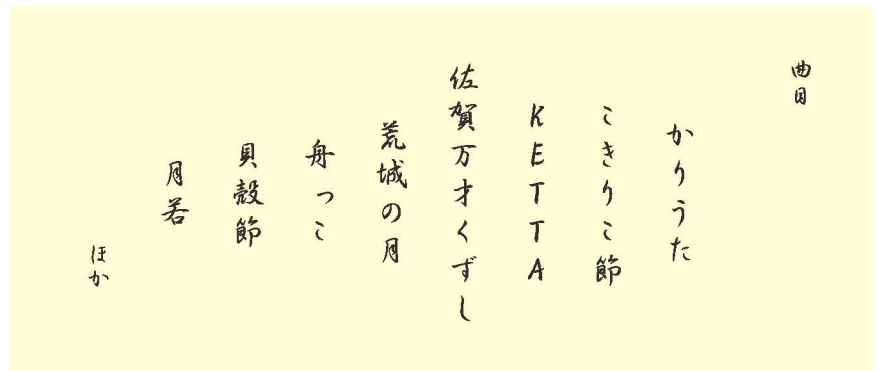 曲目
かりうた
こきりこ節
KETTA
佐賀万才くずし
荒城の月
舟っこ
貝殻節
月若
ほか